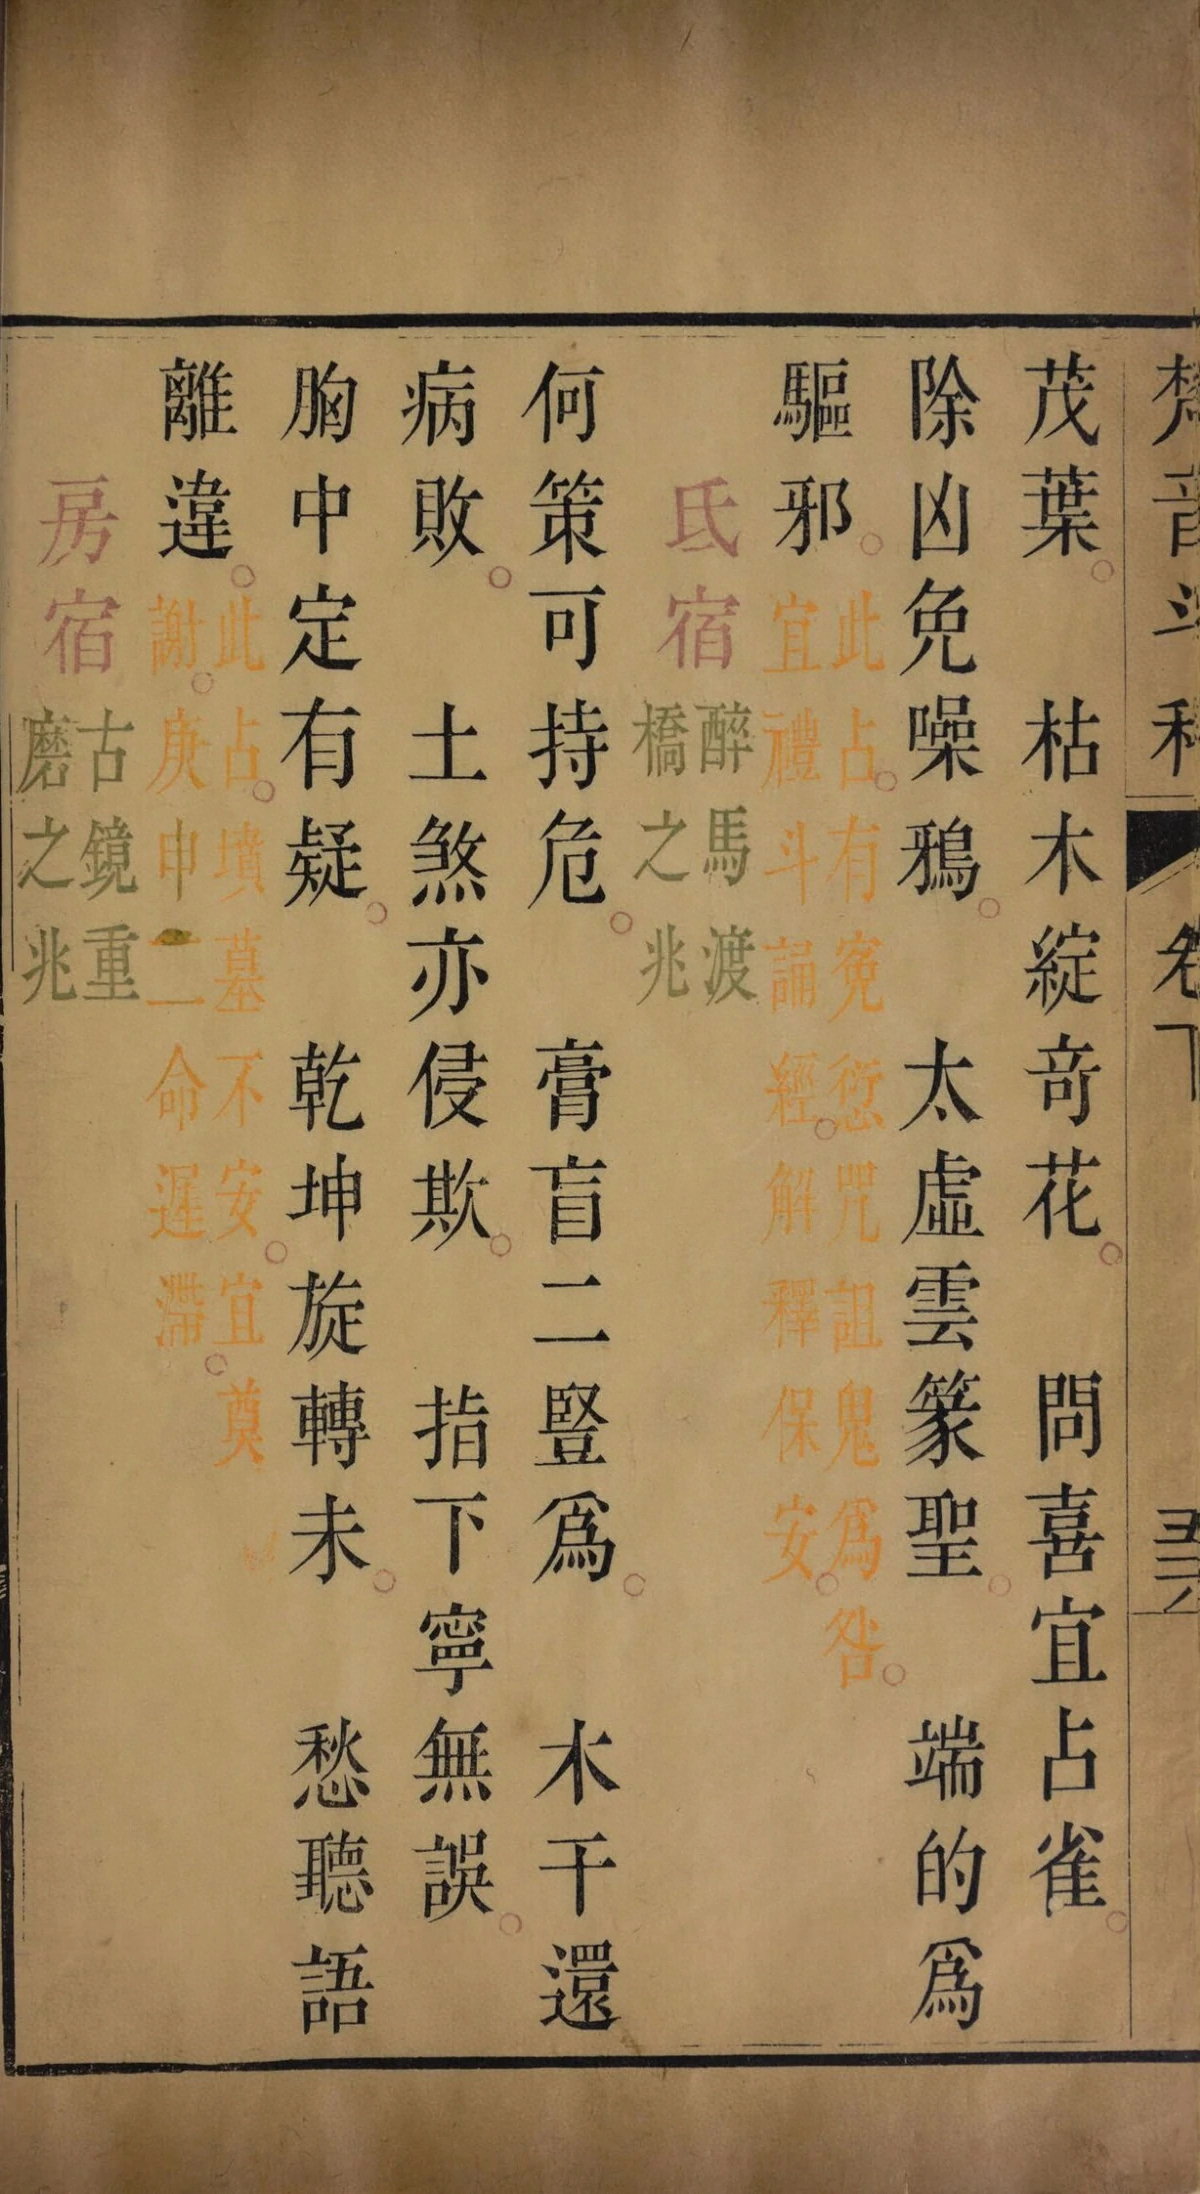 梵音斗科
卷下
茂葉。 枯木綻奇花。 問喜宜占雀。
除凶免噪鴉。 太虛雲篆聖。 端的爲
驅邪。
此占有寃愆咒詛鬼爲咎。
宜禮斗誦經。解釋保安。
氐宿
醉馬渡
橋之兆
何策可持危。 膏盲二豎爲。 木干還
病敗。 土煞亦侵欺。 指下寧無誤。
胸中定有疑。 乾坤旋轉未。 愁聽語
離違。
此占。墳墓不安。宜奠
謝。庚申二命遲滯。
房宿
古鏡重
磨之兆